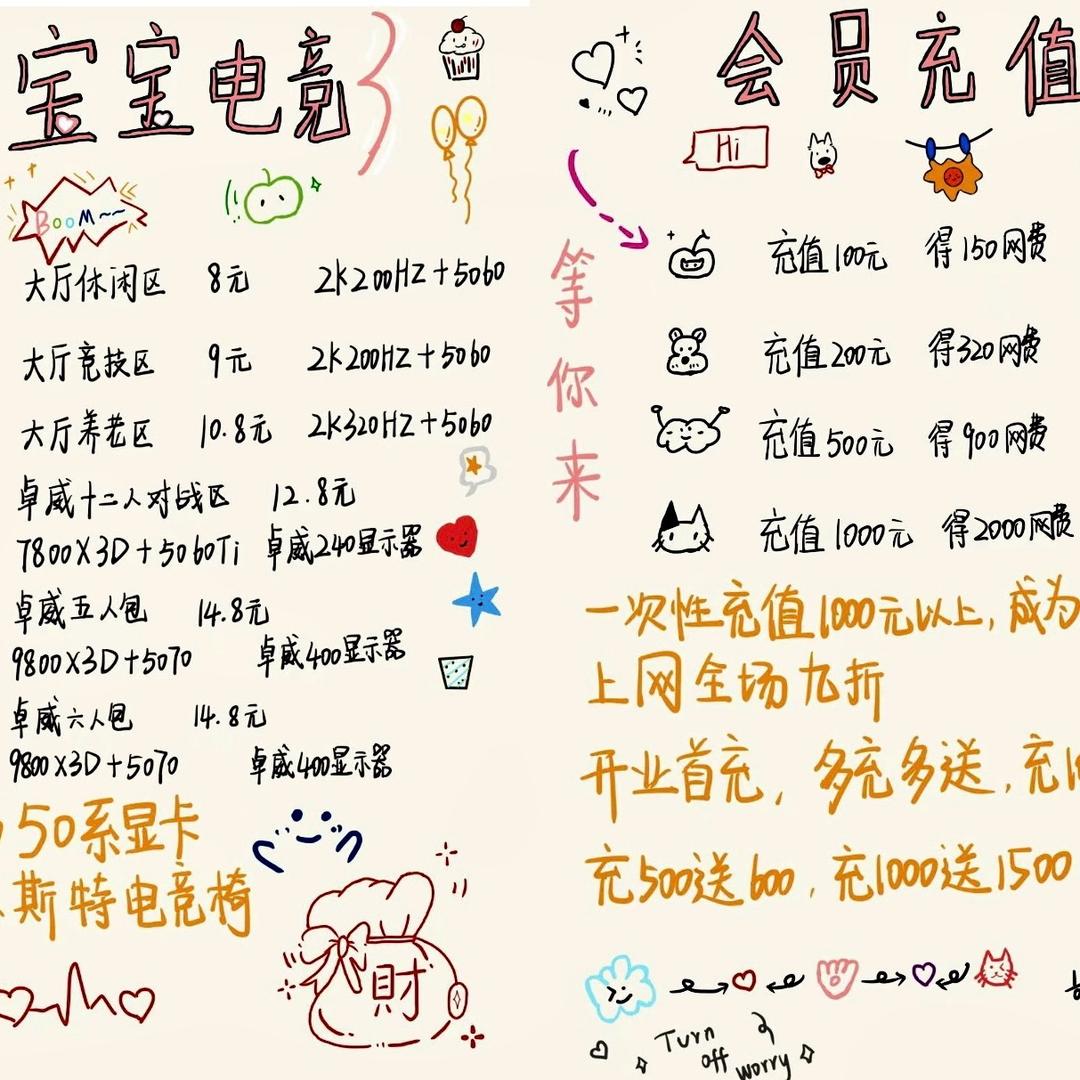 宝宝电竞
BOOM~~
大厅休闲区 8元 2K200HZ+5060
大厅竞技区 9元 2K200HZ+5060
大厅养老区 10.8元 2K320HZ+5060
卓威十二人对战区 12.8元
7800X3D+5060Ti 卓威240显示器
卓威五人包 14.8元
9800X3D+5070 卓威400显示器
卓威六人包 14.8元
9800X3D+5070 卓威400显示器
50系显卡
斯特电竞椅
財
会员充值
Hi
等你来
充值100元 得150网费
充值200元 得320网费
充值500元 得900网费
充值1000元 得2000网费
一次性充值1000元以上,成为
上网全场九折
开业首充,多充多送,充1
充500送600,充1000送1500
Turn
off
worry